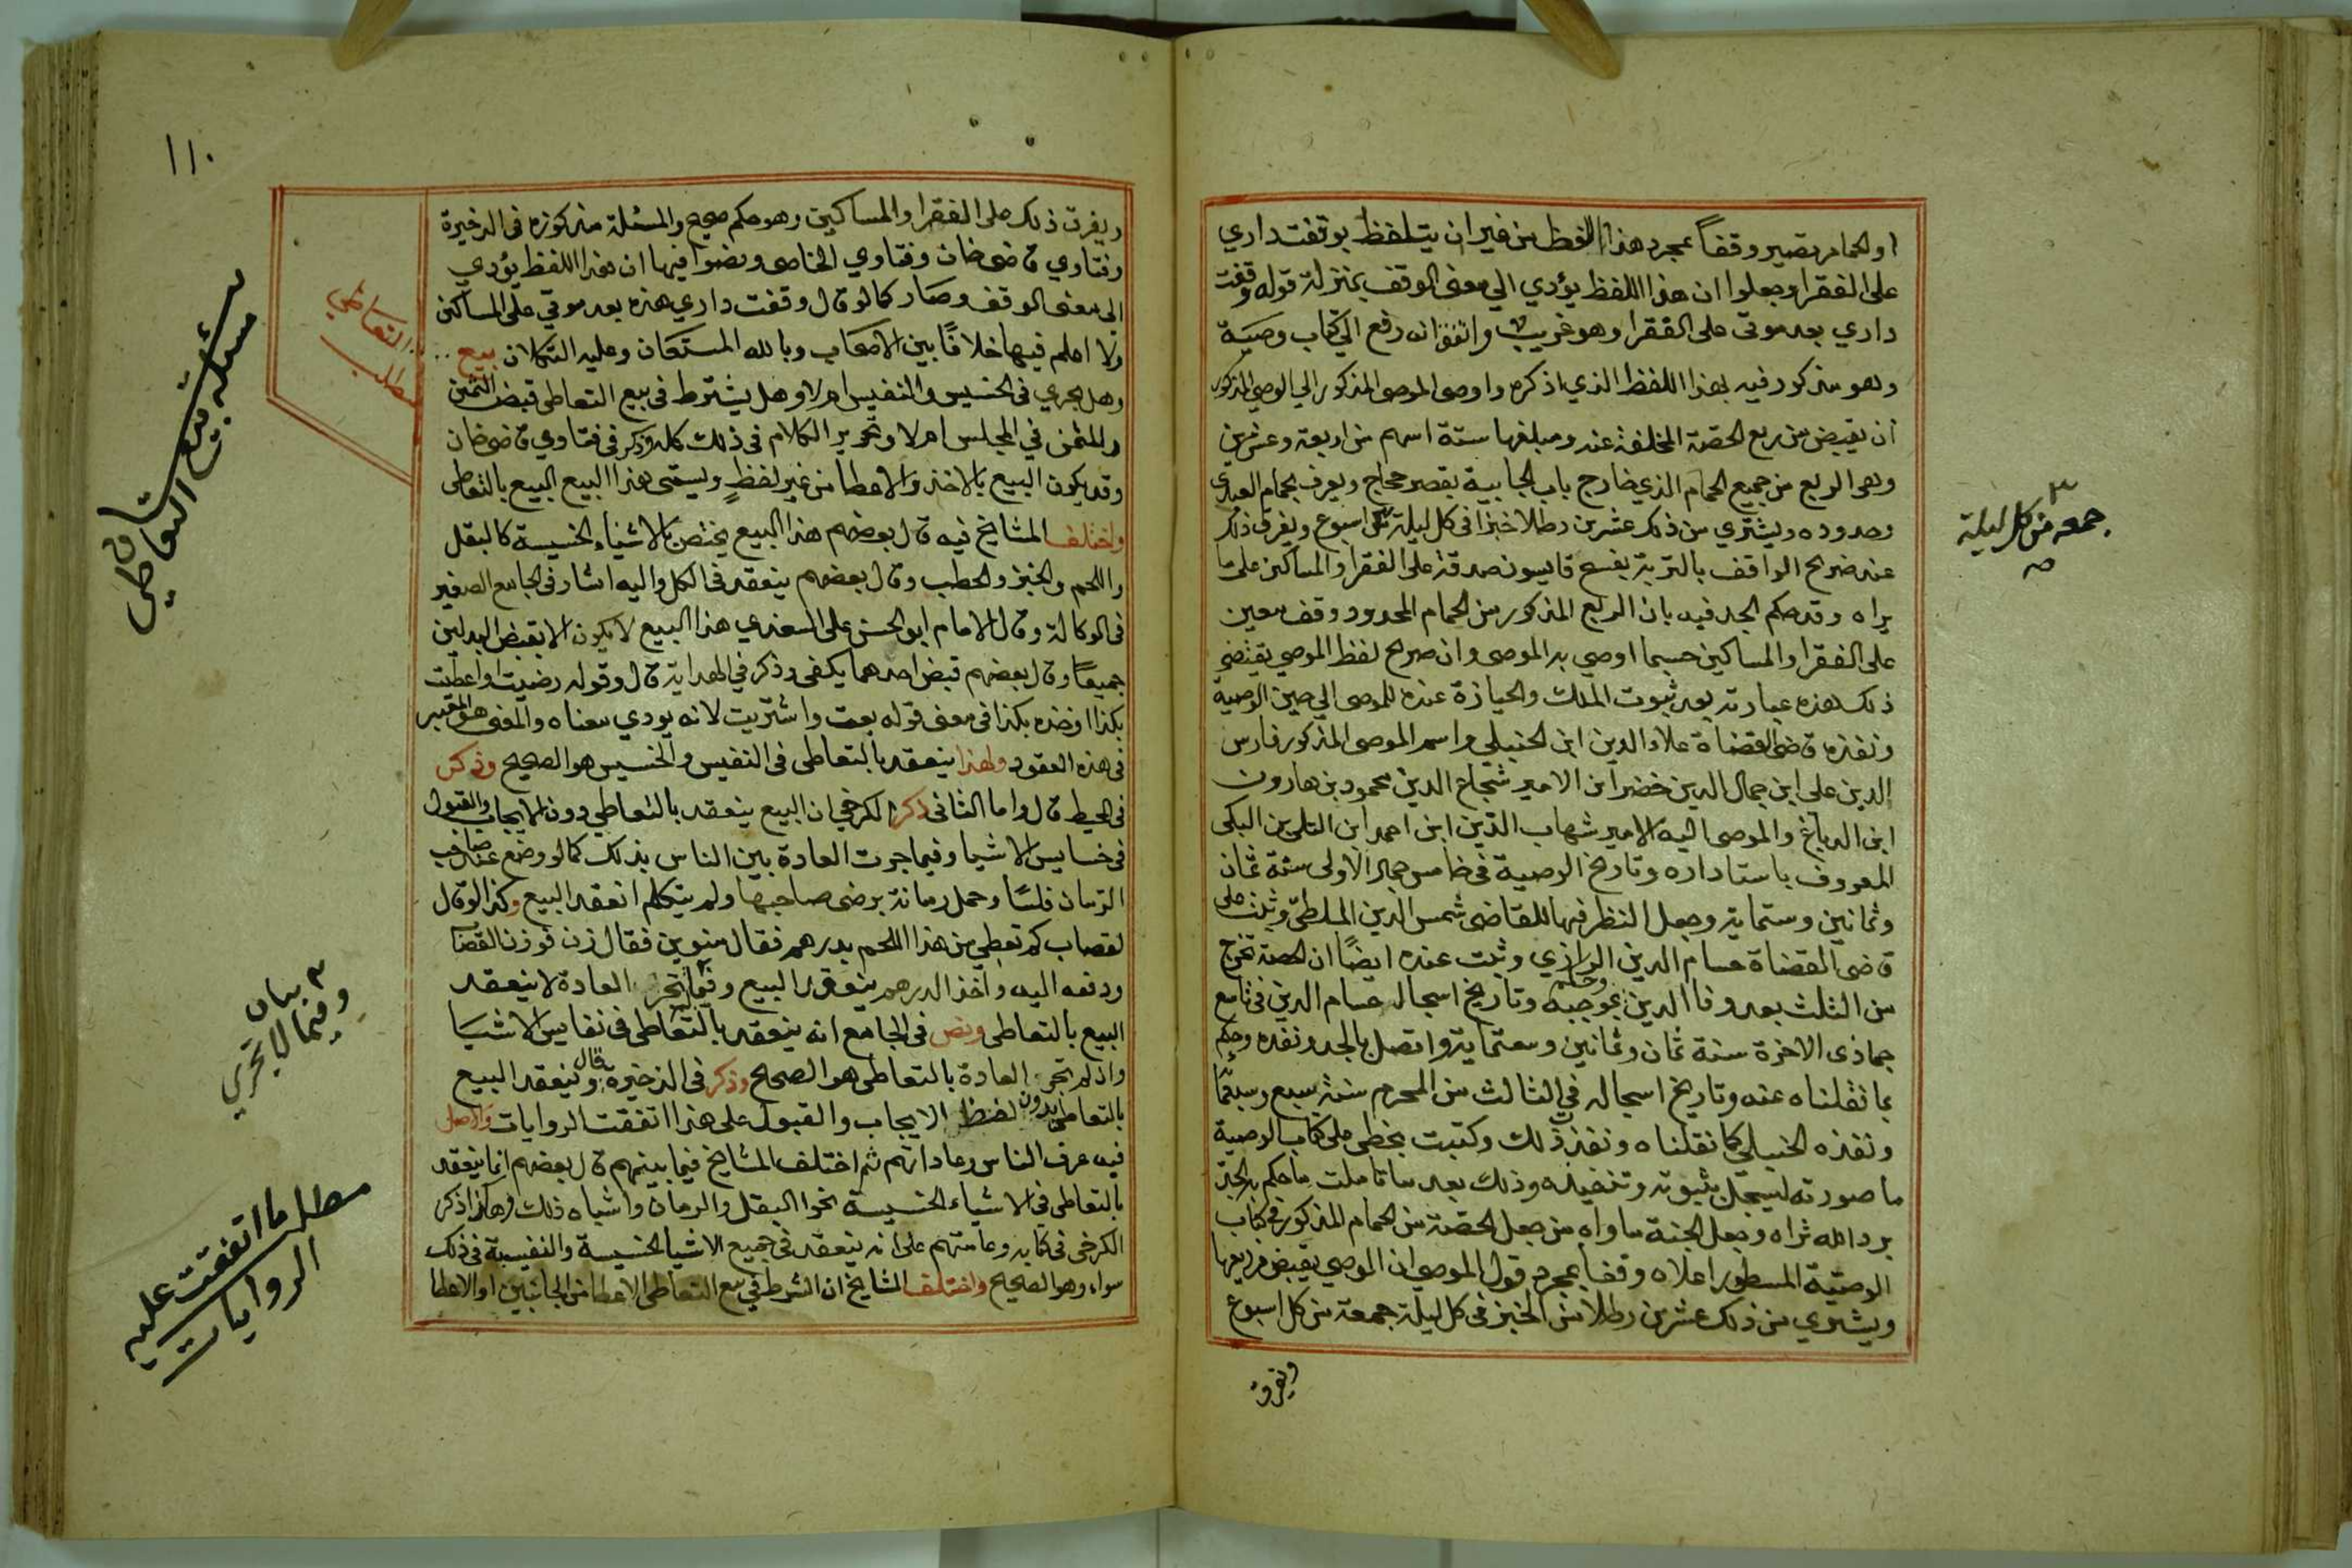 او الحمام تصير وقفاً بمجرد هذا اللفظ من غير ان يتلفظ بوقفت داري
على الفقرا وجعلوا ان هذا اللفظ يؤدي الي معنى الوقف بمنزلة قوله وقفت
داري بعد موتى على الفقرا وهو غريب واتفق انه رفع الي كتاب وصية
وهو مذكور فيه بهذا اللفظ الذي اذكره واوصى الموصى المذكور الي الوصي المذكور
ان يقبض من ريع الحصة المخلفة عنه ومبلغها ستة اسهم من اربعة وعشرين
وهى الربع من جميع الحمام الذي خارج باب الجابية بقصر حجاج ويعرف بحمام
وحدوده ويشتري من ذلك عشرين رطلا خبزا فى كل ليلة اسبوع ويفرق ذلك
عند ضريح الواقف بالتربة بفسح قايسون صدقة على الفقرا والمساكين على ما
يراه وقد حكم الجد فيه بان الربع المذكور من الحمام المحدود وقف معين
على الفقرا والمساكين حسبما اوصي به الموصى وان صريح لفظ الموصي يقتضى
ذلك هذه عبارته بعد ثبوت الملك والحيازة عنده للموصى الي حين الوصية
ونفذه قاضى القضاة علاء الدين ابن الحنبلي واسم الموصى المذكور فارس
الدين على ابن جمال الدين خضر ابن الامير شجاع الدين محمود بن هارون
ابن الدباغ والموصى اليه الامير شهاب الدين ابن احمد ابن البكى
المعروف باستاداره وتاريخ الوصية فى خامس جماد الاولى سنة ثمان
وثمانين وستماية وجعل النظر فيها للقاضى شمس الدين الملطى وثبت على
قاضى القضاة حسام الدين الرازي وثبت عنده ايضًا ان الحصة تخرج
من الثلث بعد وفا الدين وحكم بموجبه وتاريخ اسجاله حسام الدين فى تاسع
جماذى الاخرة سنة ثمان وثمانين وستماية واتصل بالجد ونفذه وحكم
بما نقلناه عنه وتاريخ اسجاله في الثالث من المحرم سنة سبع
ونفذه الحنبلي كما نقلناه ونفذ ذلك وكتبت بخطى على كتاب الوصية
ما صورته ليسجل بثبوته وتنفيذه وذلك بعد ما تاملت ما حكم به الجد
برد الله ثراه وجعل الجنة ماواه من جعل الحصة من الحمام المذكور فى كتاب
الوصية المسطور اعلاه وقفا بمجرد قول الموصي ان الموصي يقبض من ريعها
ويشتري من ذلك عشرين رطلا من الخبز فى كل ليلة جمعة من كل اسبوع
ويفرق
جمعه من كل ليلة
١١٠
ويفرق ذلك على الفقرا والمساكين وهو حكم صحيح والمسئلة مذكورة فى الذخيرة
وفتاوي قاضى خان وفتاوي الخاصى ونصوا فيها ان هذا اللفظ يؤدي
الى معنى الوقف وصار كما لو قال وقفت داري هذه بعد موتي على المساكين
ولا اعلم فيها خلافًا بين الاصحاب وبالله المستعان وعليه التكلان بيع
التعاطي
مطلب
وهل يجري فى الخسيس والنفيس ام لا وهل يشترط فى بيع التعاطى قبض الثمن
والمثمن في المجلس ام لا وتحرير الكلام فى ذلك كله ذكر فى فتاوي قاضى خان
وقد يكون البيع بالاخذ والاعطا من غير لفظٍ ويسمى هذا البيع البيع بالتعاطى
واختلف المشايخ فيه قال بعضهم هذا البيع يختص بالاشياء الخسيسة كالبقل
واللحم والخبز والحطب وقال بعضهم ينعقد فى الكل واليه اشار فى الجامع الصغير
فى الوكالة وقال الامام ابو الحسن على السغدي هذا البيع لا يكون الا بقبض البدلين
جميعًا وقال بعضهم قبض احدهما يكفى وذكر في الهداية قال وقوله رضيت او اعطيت
بكذا او خذه بكذا فى معنى قوله بعت واشتريت لانه يودي معناه والمعنى هو المعتبر
فى هذه العقود ولهذا ينعقد بالتعاطى فى النفيس والخسيس هو الصحيح وذكر
فى المحيط قال واما الثانى ذكر الكرخي ان البيع ينعقد بالتعاطي دون الايجاب والقبول
فى خسايس الاشيا وفيما جرت العادة بين الناس بذلك كما لو وضع عند صاحب
الرمان فلسًا وحمل رمانة برضى صاحبها ولم يتكلم انعقد البيع وكذا لو قال
لقصاب كم تعطى من هذا اللحم بدرهم فقال منوين فقال زن فوزن القصاب
ودفعه اليه واخذ الدرهم ينعقد البيع وفيما لم تجر العادة لا ينعقد
البيع بالتعاطى ونص فى الجامع انه ينعقد بالتعاطى فى نفايس الاشيا
واذ لم تجر العادة بالتعاطى هو الصحيح وذكر فى الذخيرة قال وينعقد البيع
بالتعاطى بدون لفظ الايجاب والقبول على هذا اتفقت الروايات والاصل
فيه عرف الناس وعاداتهم ثم اختلف المشايخ فيما بينهم قال بعضهم انما ينعقد
بالتعاطى فى الاشياء الخسيسة نحو البقل والرمان واشباه ذلك وهكذا ذكر
الكرخى فى كتابه وعامتهم على انه ينعقد فى جميع الاشيا الخسيسة والنفيسة فى ذلك
سواء وهو الصحيح واختلف المشايخ ان الشرط في بيع التعاطى الاعطا من الجانبين او الاعطا
مسئلة بيع التعاطي
بيان
وفيما لا تجري
مطلب ما اتفقت عليه
الروايات